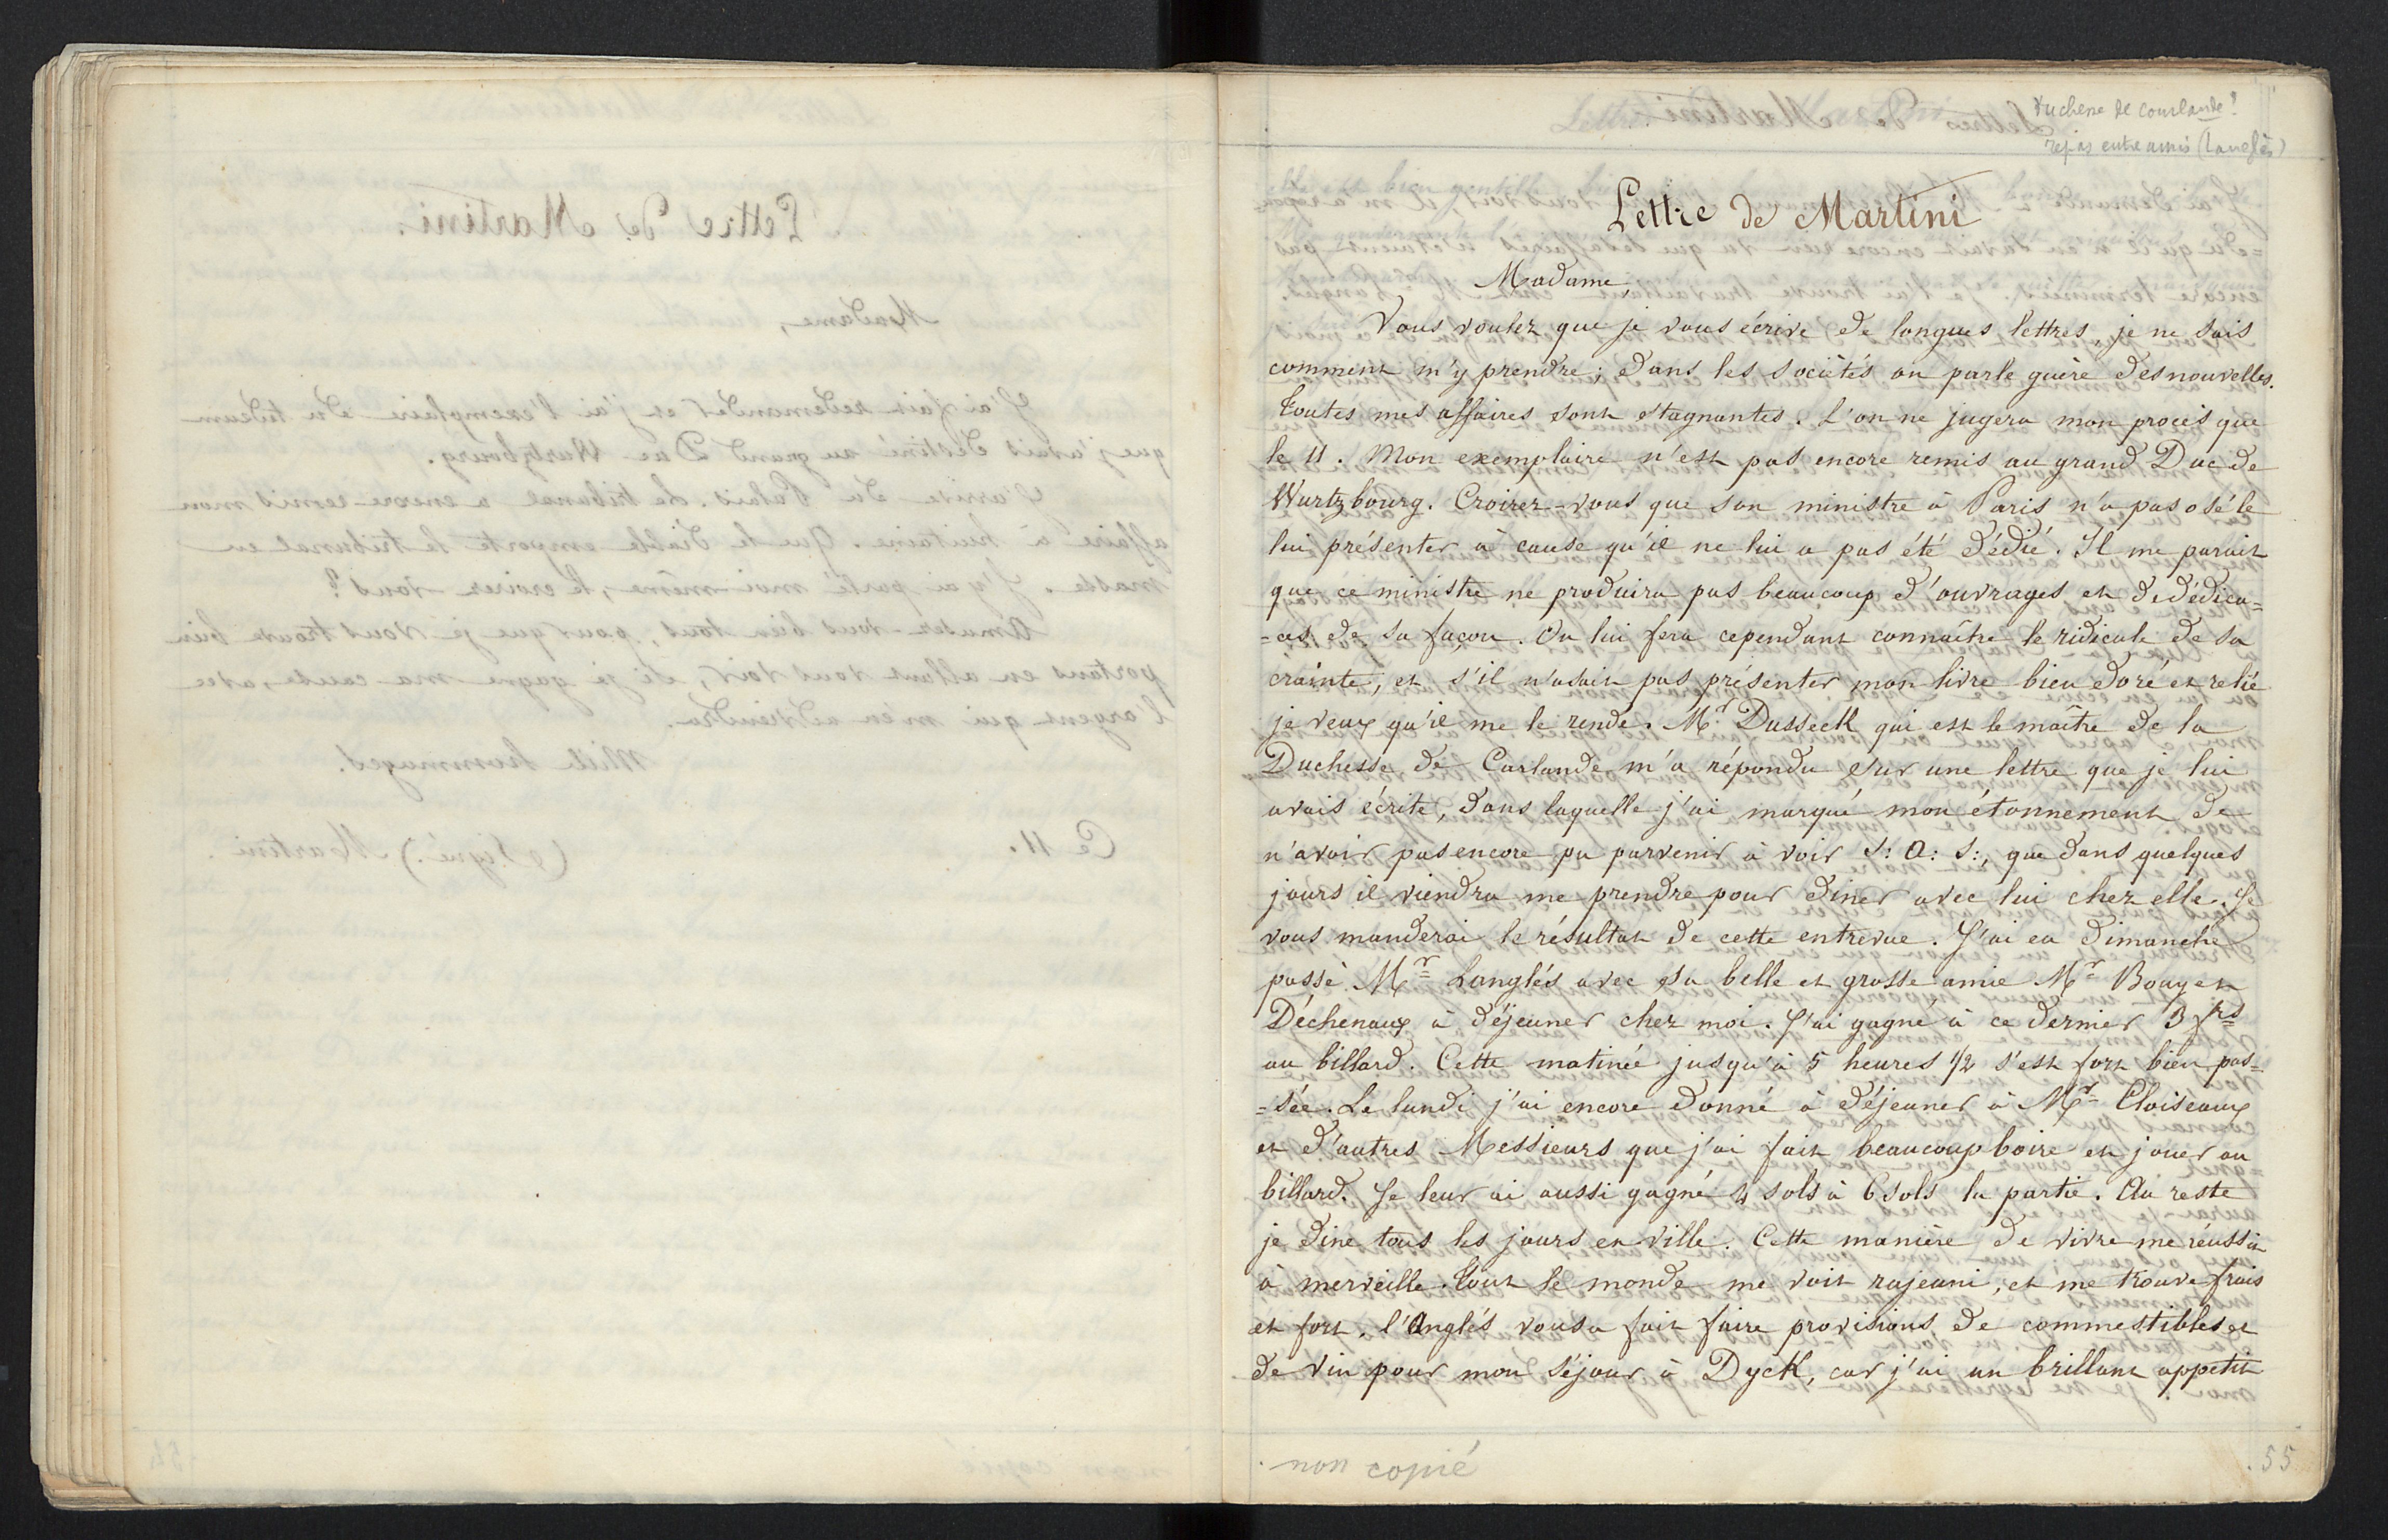 duchesse de courlande!
repas entre amis (Langlès)
Lettre de Martini
Madame,
Vous voulez que je vous écrive de longues lettres, je ne sais
comment m'y prendre; dans les sociétés on parle guère des nouvelles.
Toutes mes affaires sont stagnantes. L'on ne jugera mon procès que
le 11. Mon exemplaire n'est pas encore remis au grand Duc de
Wurtzbourg. Croirez-vous que son ministre à Paris n'a pas osé le
lui présenter à cause qu'il ne lui a pas été dédié. Il me parait
que ce ministre ne produira pas beaucoup d'ouvrages et de dédica=
=ces de sa façon. On lui fera cependant connaître le ridicule de sa
crainte, et s'il n'osait pas présenter mon livre bien doré et relié
je veux qu'il me le rende. Mr Dusseck qui est le maître de la
Duchesse de Curlande m'a répondu sur une lettre que je lui
avais écrite, dans laquelle j'ai marqué mon étonnement de
n'avoir pas encore pu parvenir à voir S: A: S:, que dans quelques
jours il viendra me prendre pour diner avec lui chez elle. Je
vous manderai le résultat de cette entrevue. J'ai eu dimanche
passé Mr Langlés avec sa belle et grosse amie Mr Bouyer
Déchenaux à déjeuner chez moi. J'ai gagné à ce dernier 3 frs
au billard. Cette matinée jusqu'à 5 heures 1/2 s'est fort bien pas=
=sée. Le lundi j'ai encore donné à déjeuner à Mr Cloiseaux
et d'autres Messieurs que j'ai fait beaucoup boire et jouer au
billard. Je leur ai aussi gagné 4 sols à 6 sols la partie. Au reste
je dine tous les jours en ville. Cette manière de vivre me réussit
à merveille. Tout le monde me voit rajeuni, et me trouve frais
et fort. l'Anglés vous a fait faire provisions de commestibles et
de vin pour mon séjour à Dyck, car j'ai un brillant appetit
non copié
55